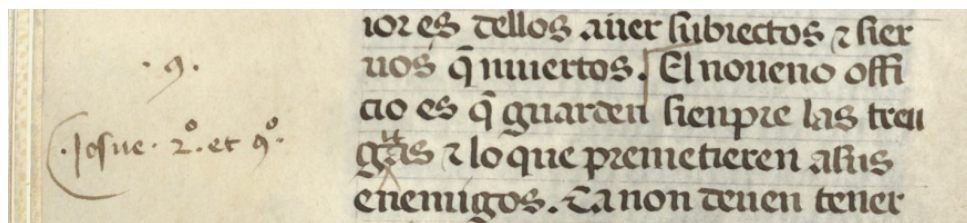 ·9·
·Josue· 2º· et 9º·
ior es dellos auer subiectos ⁊ sier
uos q̄ muertos. El noueno offi
cio es q̄ guarden sienpre las treu
gas ⁊ lo que premetieren a sus
enemigos. Ca non deuen tener